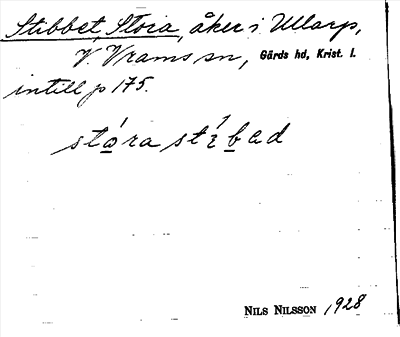 Stibbet, Stora, åker i Ullarp,
V. Vrams sn, Gärds hd, Krist. l.
intill p 175.
stọ́ra stí̤b̲ad
NILS NILSSON 1928